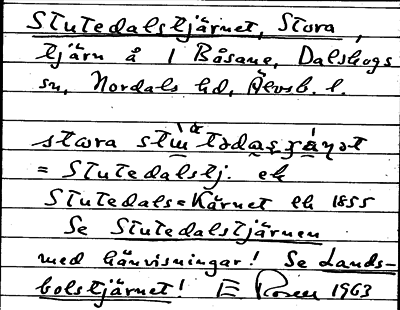 Stutedalstjärnet, Stora,
tjärn å 1 Båsane, Dalskogs
sn, Nordals hd, Älvsb. l.
stora
= Stutedalstj. ek
Stutedals=Kärnet ek 1855
Se Stutedalstjärnen
med hänvisningar! Se Lands-
bolstjärnet! E Rosén 1963